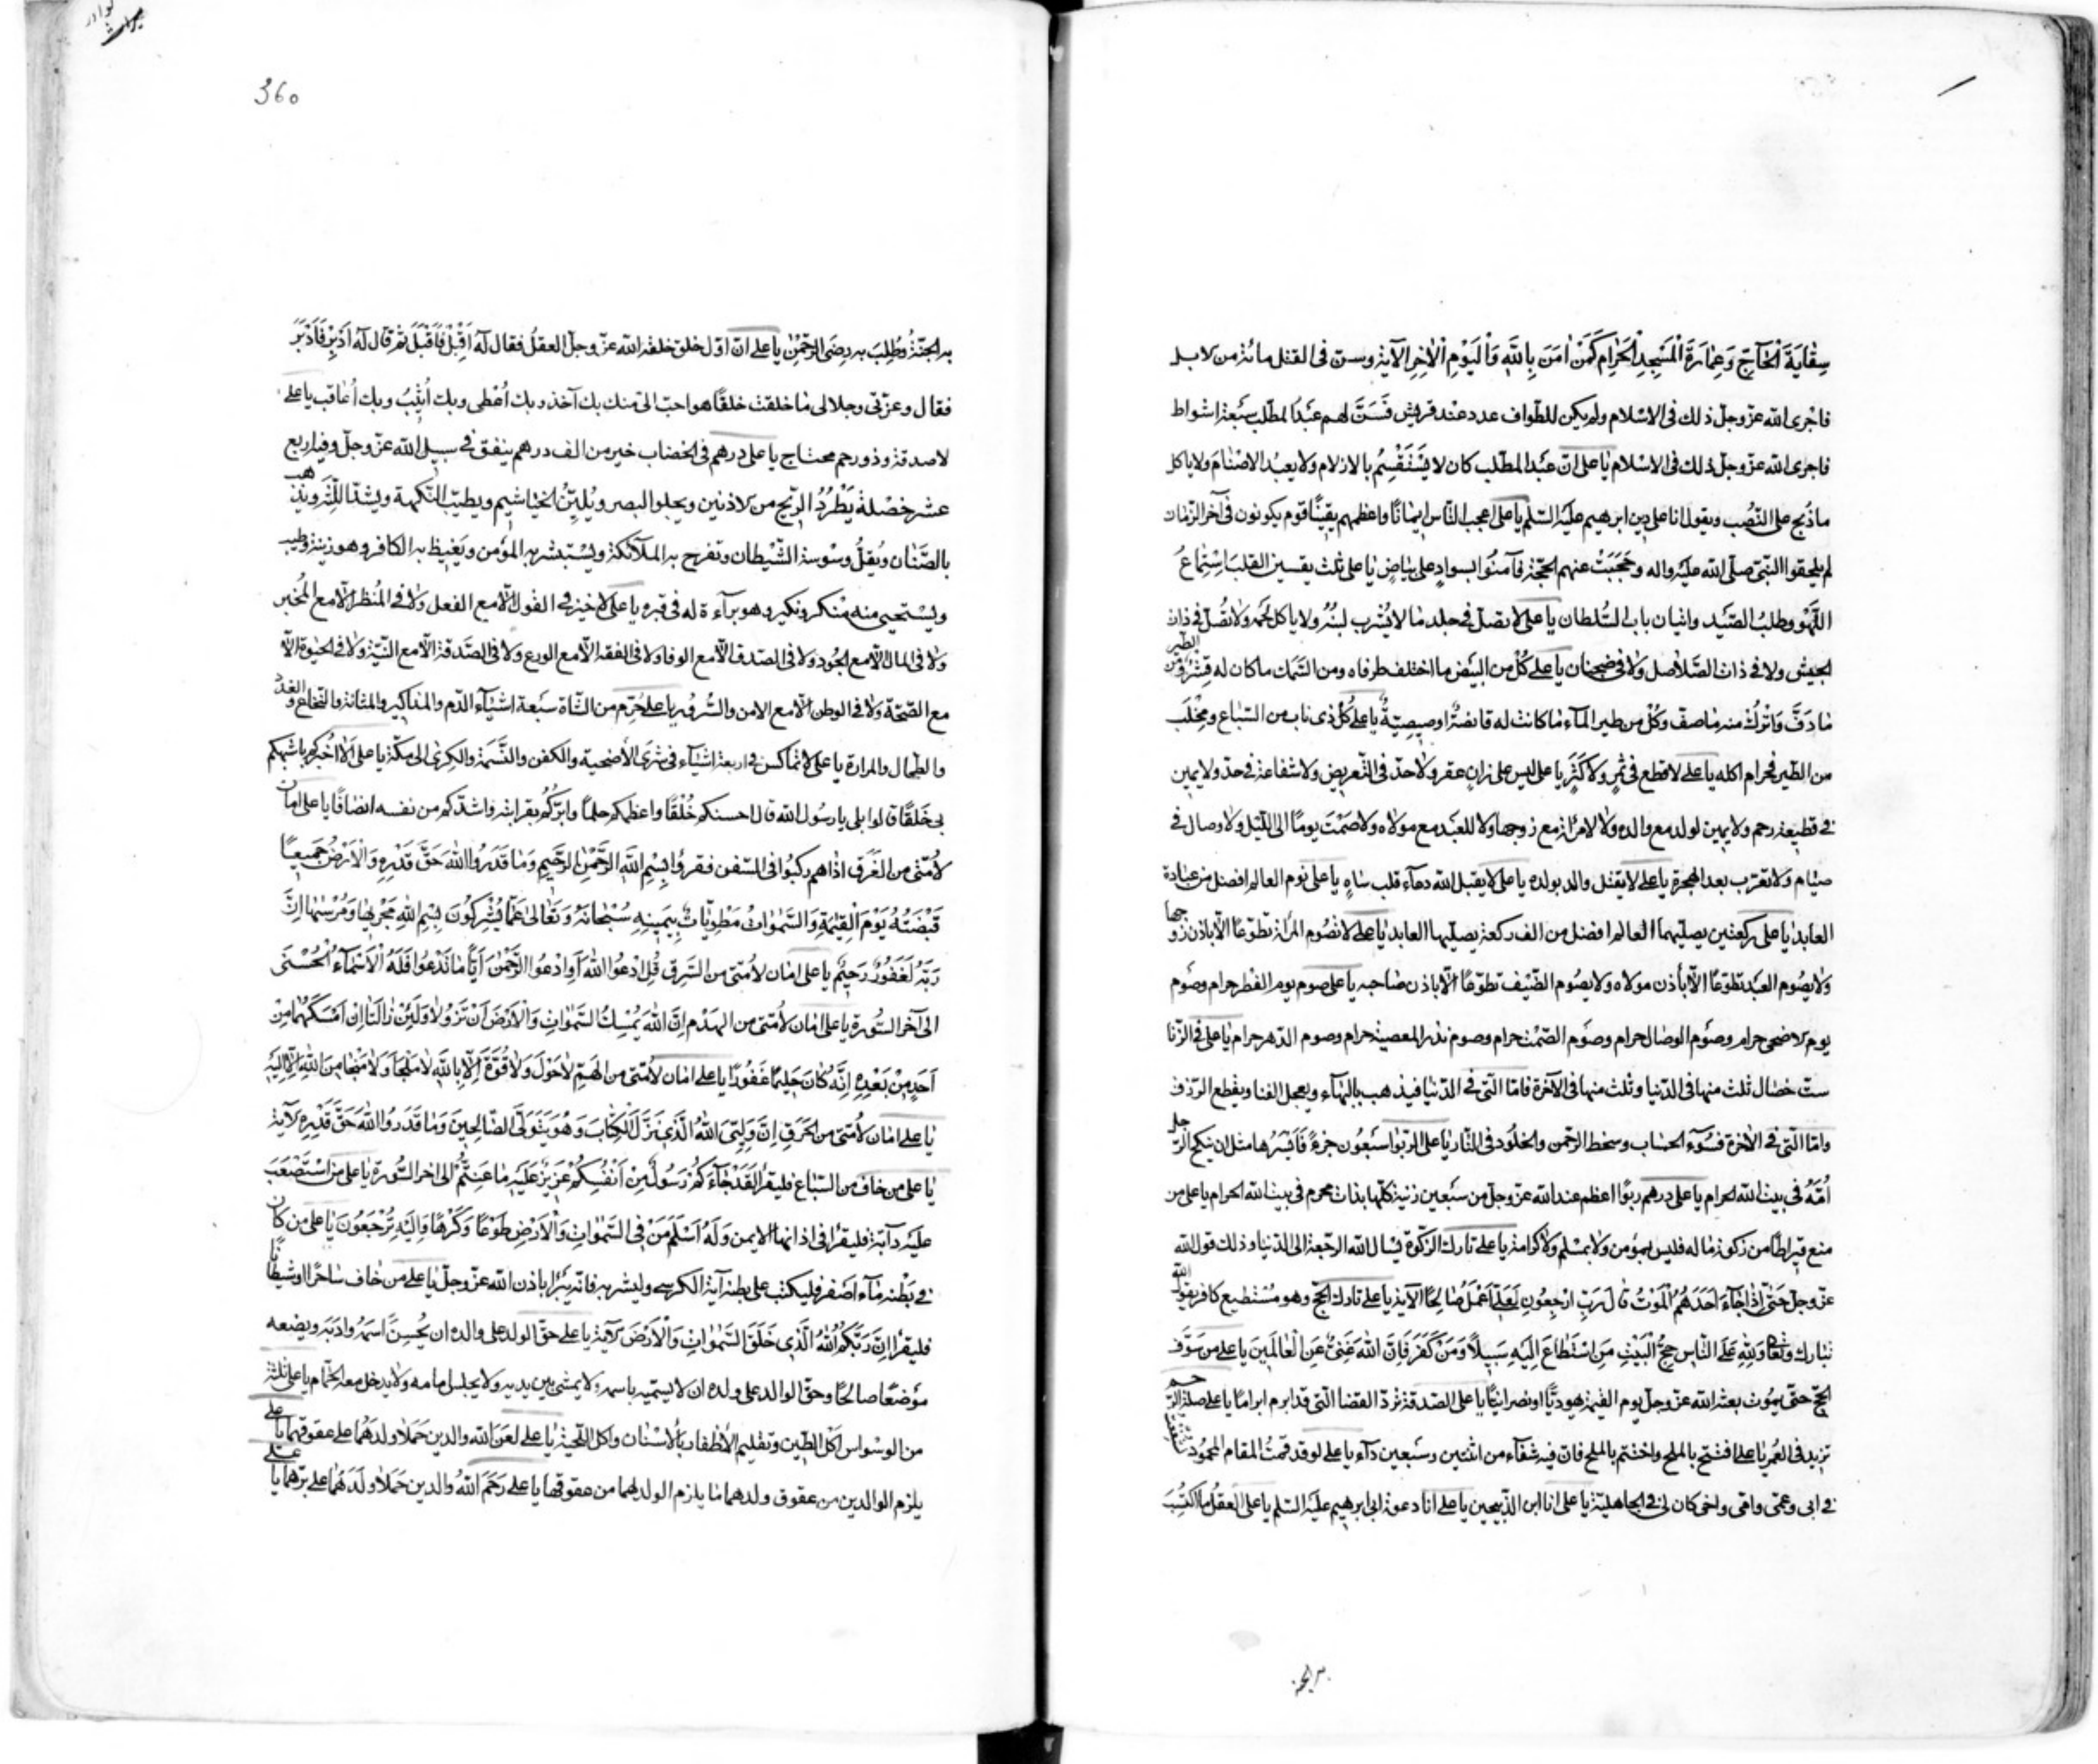 سِقٰايَةَ الْحٰآجِّ وَعِمٰارَةَ الْمَسْجِدِ الْحَرٰامِ كَمَنْ اٰمَنَ بِاللّٰهِ وَالْيَوْمِ الْاٰخِرِ الآية وسن فى القتل مائة من الابل
فاجرى الله عزّ وجلّ ذلك فى الاسلام ولم يكن للطّواف عدد عند قريش فَسَنَّ لهم عَبْدُ المطّلب سَبْعة اشواط
فاجرى الله عزّ وجلّ ذلك فى الاسلام يا على انّ عبْد المطّلب كان لا يَسْتَقْسِمُ بالازلام ولا يعبدُ الاصْنٰامَ ولا ياكل
ماذُبح على النّصُب ويقول انا على دين ابرهيم عليْه السّلم يا على اعجب النّاس ايمانًا واعظمهم يقينًا قوم يكونون فى آخر الزّمان
لم يلحقوا النّبىّ صلّى الله عليْه واله وحجَبَتْ عنهم الحجّة فآمَنُوا بسوادٍ على بيٰاضٍ يا على ثلث يقسين القلبَ اسْتِمٰاعُ
اللّهْو وطلبُ الصّيْد واتيان باب السُّلطان يا على لا تصلّ فى جلد ما لا يُشرب لبنُهُ ولا ياكل لحمه ولا تُصلّ فى ذات
الجيش ولا فى ذات الصّلاصل ولا فى ضجنان يا على كُلْ من البيْض ما اختلف طرفاه ومن السَّمك ما كان له قِشرٌ ومن الطّير
مٰا دَفَّ واتْرُك منه مٰا صفّ وكُلْ من طير المآء مٰا كانت له قانصَةٌ او صيصِيَةٌ يا على كُلُّ ذى ناب من السّباع ومِخْلَب
من الطّير فحرام اكله يا على لا قطع فى ثمرٍ ولا كَثَرٍ يا على ليس على زانٍ عقر ولا حدّ فى التّعريض ولا شفاعة فى حدّ ولا يمين
فى قطيعة رحم ولا يمين لولد مع والده ولا لامرأة مع زوجها ولا للعبْد مع مولاه ولا صَمْتَ يومًا الى اللّيْل ولا وصال فى
صيٰام ولا تعرّب بعد الهجرة يا على لا يقتل والد بولده يا على لا يقبل الله دعآء قلب سٰاهٍ يا على نوم العالم افضل من عبادة
العابد يا على ركعتين يصلّيهما العالم افضل من الف ركعة يصلّيها العابد يا على لا تصُوم المرأة تطوّعًا الّا باذن زوجها
ولا يصُوم العبْد تطوّعًا الّا بأذن مولاه ولا يصُوم الضّيْف تطوّعًا الّا باذن صٰاحبه يا على صوم يوم الفطر حرام وصوم
يوم الاضحى حرام وصَوْم الوصٰال حرام وصَوْم الصّمْت حرام وصوم نذر المعصية حرام وصوم الدّهر حرام يا على فى الزّنا
ستّ خصٰال ثلث منها فى الدّنيا وثلث منها فى الآخرة فامّا الّتى فى الدّنيٰا فيذهب بالبهٰآء ويعجل الفنا ويقطع الرّزق
وامّا الّتى فى الآخرة فسُوٓء الحسٰاب وسخط الرّحمن والخلُود فى النّار يا على الرّبٰوا سَبْعُون جزءً فَأَيْسَرُها مثل ان ينكح الرّجل
اُمَّهُ فى بيت الله الحرام يا على درهم ربًوا اعظم عند الله عزّ وجلّ من سَبْعين زنية كلّها بذات محرم فى بيت الله الحرام يا على من
منع قيراطًا من زكوة مٰاله فليس بمؤمن ولا بمسْلم ولا كرامة يا على تارك الزّكوة يسٰال الله الرّجعة الى الدّنيا وذلك قول الله
عزّ وجلّ حَتّٰى اِذٰا جٰآءَ اَحَدَهُمُ الْمَوْتُ قٰالَ رَبِّ ارْجِعُونِ لَعَلّى اَعْمَلُ صٰالِحًا الآية يا على تارك الحجّ وهو مُسْتطيع كافر يقول الله
تبارك وتعٰالى وَلِلّٰهِ عَلَى النّٰاسِ حِجُّ الْبَيْتِ مَنِ اسْتَطٰاعَ اِلَيْهِ سَبيلًا وَمَنْ كَفَرَ فَاِنَّ اللّٰهَ غَنِىٌّ عَنِ الْعٰالَمينَ يا على من سَوَّف
الحجّ حتّى يموت بعثه الله عزّ وجلّ يوم القيٰمة يهوديًّا او نصرانيًّا يا على الصّدقة تردّ القضا الّتى قد ابرم ابرامًا يا على صلة الرّحم
تزيد فى العُمر يا على افتتح بالملح واختتم بالملح فانّ فيه شفآء من اثنين وسَبعين دآء يا على لو قد قمتُ المقام المحمُود لشفعتُ
فى ابى وعمّى وامّى واخى كان لى فى الجاهليّة يا على انا ابن الذّبيحين يا على انا دعوة ابى ابرهيم عليْه السّلم يا على العقلُ ما اكتُسِبَ
به الجنّة
360
به الجنّةُ وطُلِبَ به رضَى الرّحْمٰنِ يا على انّ اوّل خلق خلقه الله عزّ وجلّ العقلُ فقال لَهُ اَقْبِلْ فَاَقْبَلَ ثمّ قال لَهُ اَدْبِرْ فَاَدْبَرَ
فقال وعزّتى وجلالى مٰا خلقت خلقًا هو احبّ الىّ منك بك آخذ وبك اُعْطى وبك اُثيبُ وبك اُعٰاقب يا على
لا صدقة وذو رحم محتاج يا على درهم فى الخضاب خير من الف درهم ينفق فى سبيل الله عزّ وجلّ وفيه اربع
عشر خصْلة يَطْرُدُ الرّيح من الاذنين ويجلو البصر ويُليّنُ الخياشيم ويطيّب النّكهة ويشدّ اللّثة ويذهب
بالضّنٰان ويُقِلُّ وسْوسة الشّيْطان وتفرح به الملآئكة ويسْتبشر به المؤمن ويَغيظ به الكافر وهو زينة وطيب
ويسْتحيى منه مُنْكر ونكير وهو برآءة له فى قبره يا على لا خيْر فى القول الّا مع الفعل ولا فى المنْظر الّا مع المخْبر
ولا فى المال الّا مع الجُود ولا فى الصّدق الّا مع الوفا ولا فى الفقه الّا مع الورع ولا فى الصّدقة الّا مع النّيّة ولا فى الحيٰوة الّا
مع الصّحّة ولا فى الوطن الّا مع الامن والسّرور يا على حُرّم من الشّاة سَبْعة اشيٰآء الدّم والمذاكير والمثانة والنّخاع والغدد
والطّحال والمرارة يا على لا تماكس فى اربعة اشيٰآء فى شرَى الأضحية والكفن والنَّسَمة والكرى الى مكّة يا على اَلا اُخْبركم باشبهكم
بى خَلقًا قالوا بلى يا رسُول الله قال احسنكم خُلقًا واعظمكم حلمًا وابرّكُم بقرابته واشدّكم من نفسه انصٰافًا يا على امان
لأمّتى من الغَرَق اذا هم ركبُوا فى السّفن فقرؤا بِسْمِ اللّٰهِ الرَّحْمٰنِ الرَّحيمِ وَمٰا قَدَرُوا اللّٰهَ حَقَّ قَدْرِهِ وَالْاَرْضُ جَميعًا
قَبْضَتُهُ يَوْمَ الْقِيٰمَةِ وَالسَّمٰوٰاتُ مَطْوِيّٰاتٌ بِيَمينِهِ سُبْحٰانَهُ وَتَعٰالىٰ عَمّٰا يُشْرِكُونَ بِسْمِ اللّٰهِ مَجْرٖيهٰا وَمُرْسٰيهٰا اِنَّ
رَبّى لَغَفُورٌ رَحيمٌ يا على امٰان لأمّتى من السَّرق قُلِ ادْعُوا اللّٰهَ اَوِ ادْعُوا الرَّحْمٰنَ اَيًّا مٰا تَدْعُوا فَلَهُ الْاَسْمٰآءُ الْحُسْنٰى
الى آخر السُّورة يا على امٰان لأمّتى من الهدْم اِنَّ اللّٰهَ يُمْسِكُ السَّمٰوٰاتِ وَالْاَرْضَ اَنْ تَزُولٰا وَلَئِنْ زٰالَتٰا اِنْ اَمْسَكَهُمٰا مِنْ
اَحَدٍ مِنْ بَعْدِهِ اِنَّهُ كٰانَ حَليمًا غَفُورًا يا على امٰان لأمّتى من الهمّ لٰا حَوْلَ وَلٰا قُوَّةَ اِلّٰا بِاللّٰهِ لٰا مَلْجَأَ وَلٰا مَنْجٰا مِنَ اللّٰهِ اِلّٰا اِلَيْهِ
يا على امٰان لأمّتى من الحَرَق اِنَّ وَلِيّىَ اللّٰهُ الَّذى نَزَّلَ الْكِتٰابَ وَهُوَ يَتَوَلَّى الصّٰالِحينَ وَمٰا قَدَرُوا اللّٰهَ حَقَّ قَدْرِهِ الآية
يا على من خاف من السّبٰاع فليقرأ لَقَدْ جٰآءَكُمْ رَسُولٌ مِنْ اَنْفُسِكُمْ عَزيزٌ عَلَيْهِ مٰا عَنِتُّمْ الى اخر السُّورة يا على من اسْتَصْعَبَ
عليْه دآبّة فليقرأ فى اذانها الايمن وَلَهُ اَسْلَمَ مَنْ فِى السَّمٰوٰاتِ وَالْاَرْضِ طَوْعًا وَكَرْهًا وَاِلَيْهِ تُرْجَعُونَ يا على من كان
فى بَطْنه مٰآء اصْفر فليكتب على بطنه آية الكرسى وليشربه فانّه يبْرأ باذن الله عزّ وجلّ يا على من خاف سٰاحرًا او شيْطٰانًا
فليقرأ اِنَّ رَبَّكُمُ اللّٰهُ الَّذى خَلَقَ السَّمٰوٰاتِ وَالْاَرْضَ الآية يا على حقّ الولد على والده ان يُحْسِنَ اسمهُ وادَبَهُ ويضعه
مَوْضعًا صالحًا وحقّ الوالد على ولده ان لا يسمّيه باسمه ولا يمشى بين يديه ولا يجلس امامه ولا يدخل معه الحَمّام يا على ثلثة
من الوسْواس اكل الطّين وتقليم الأظفار بالأسْنان واكل اللّحية يا على لعَن الله والدين حَمَلا ولدَهُما على عقوقهما يا على
يلزم الوالدين من عقوق ولدهما مٰا يلزم الولد لهما من عقوقهما يا على رَحِمَ اللهُ والدين حَمَلا ولدَهُما على برّهما يا على